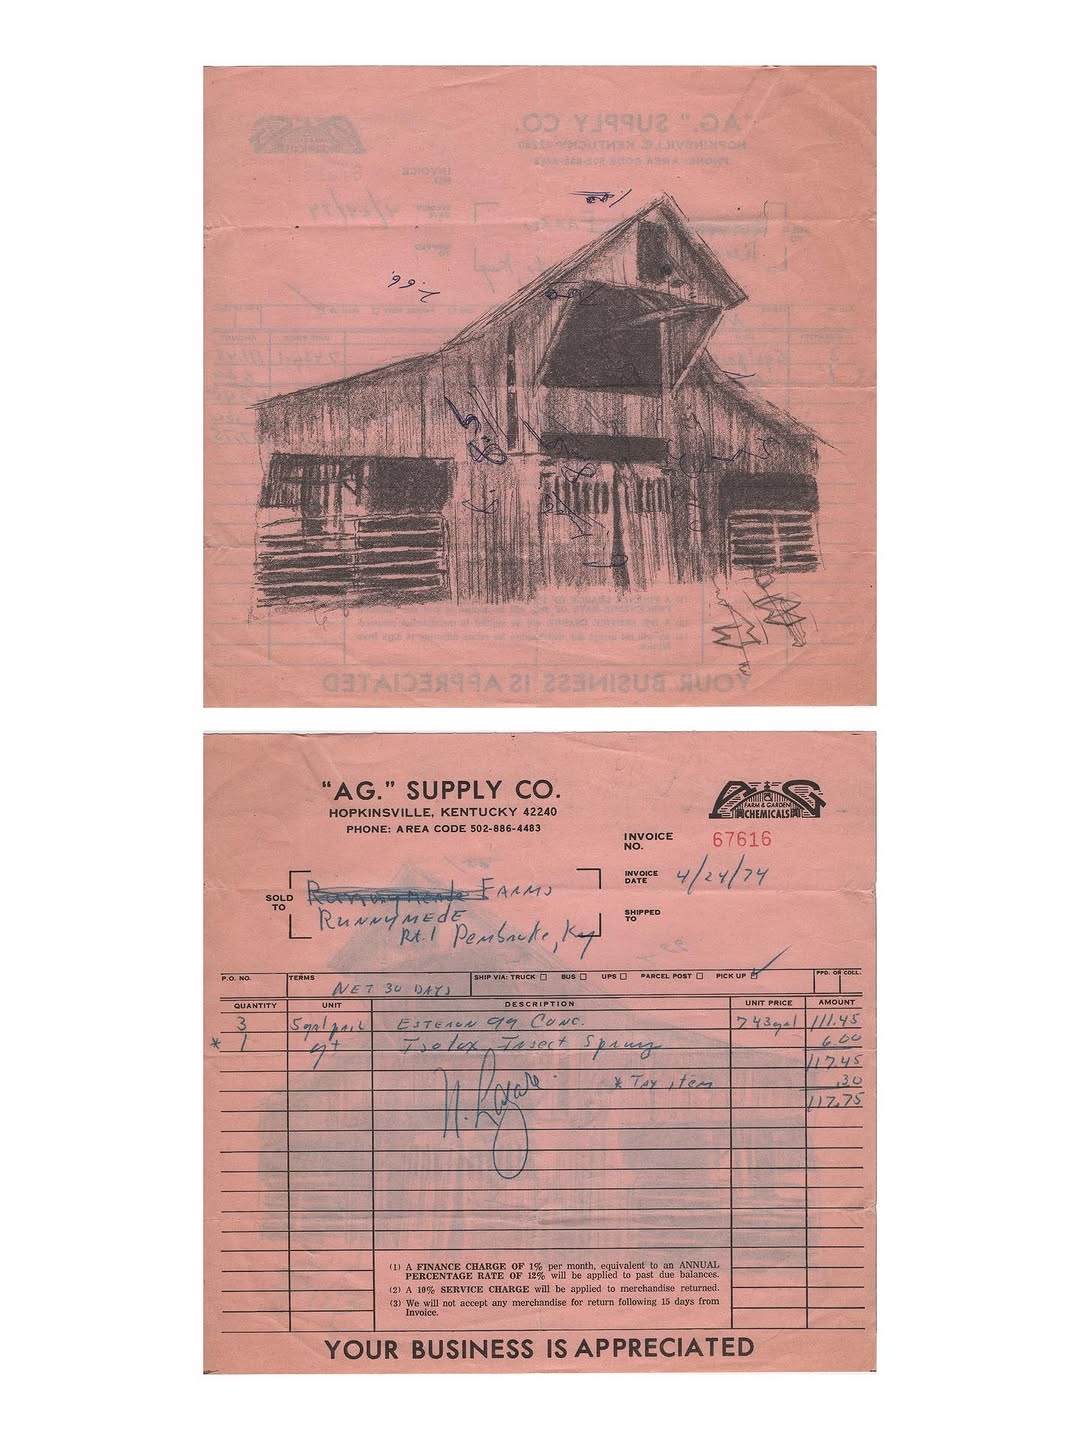 "AG." SUPPLY CO.
HOPKINSVILLE, KENTUCKY 42240
PHONE: AREA CODE 502-886-4483
INVOICE NO.
YOUR BUSINESS IS APPRECIATED
"AG." SUPPLY CO.
HOPKINSVILLE, KENTUCKY 42240
PHONE: AREA CODE 502-886-4483
AG
FARM & GARDEN
CHEMICALS
INVOICE NO. 67616
INVOICE DATE 4/24/74
SHIPPED TO
SOLD TO
Farms
Runnymede
Rt. 1 Pembroke, Ky
P.O. NO. TERMS SHIP VIA: TRUCK BUS UPS PARCEL POST PICK UP ✓ PPD. OR COLL.
NET 30 DAYS
QUANTITY UNIT DESCRIPTION UNIT PRICE AMOUNT
3 5 gal Esteron 99 Conc. 743 gal 111.45
* 1 qt Insect Spray 6.00
117.45
* Tax item .30
117.75
(1) A FINANCE CHARGE OF 1% per month, equivalent to an ANNUAL
PERCENTAGE RATE OF 12% will be applied to past due balances.
(2) A 10% SERVICE CHARGE will be applied to merchandise returned.
(3) We will not accept any merchandise for return following 15 days from
Invoice.
YOUR BUSINESS IS APPRECIATED